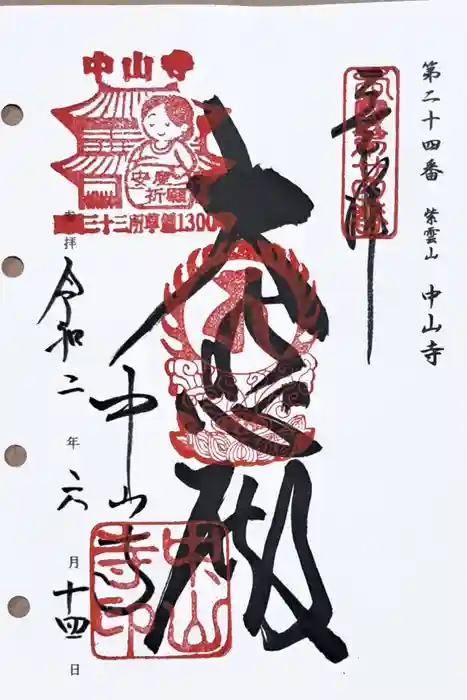 第二十四番 紫雲山 中山寺
大悲殿
中山寺
奉拝
令和二年六月十四日
中山寺
安産
祈願
三十三所草創1300
中山寺印